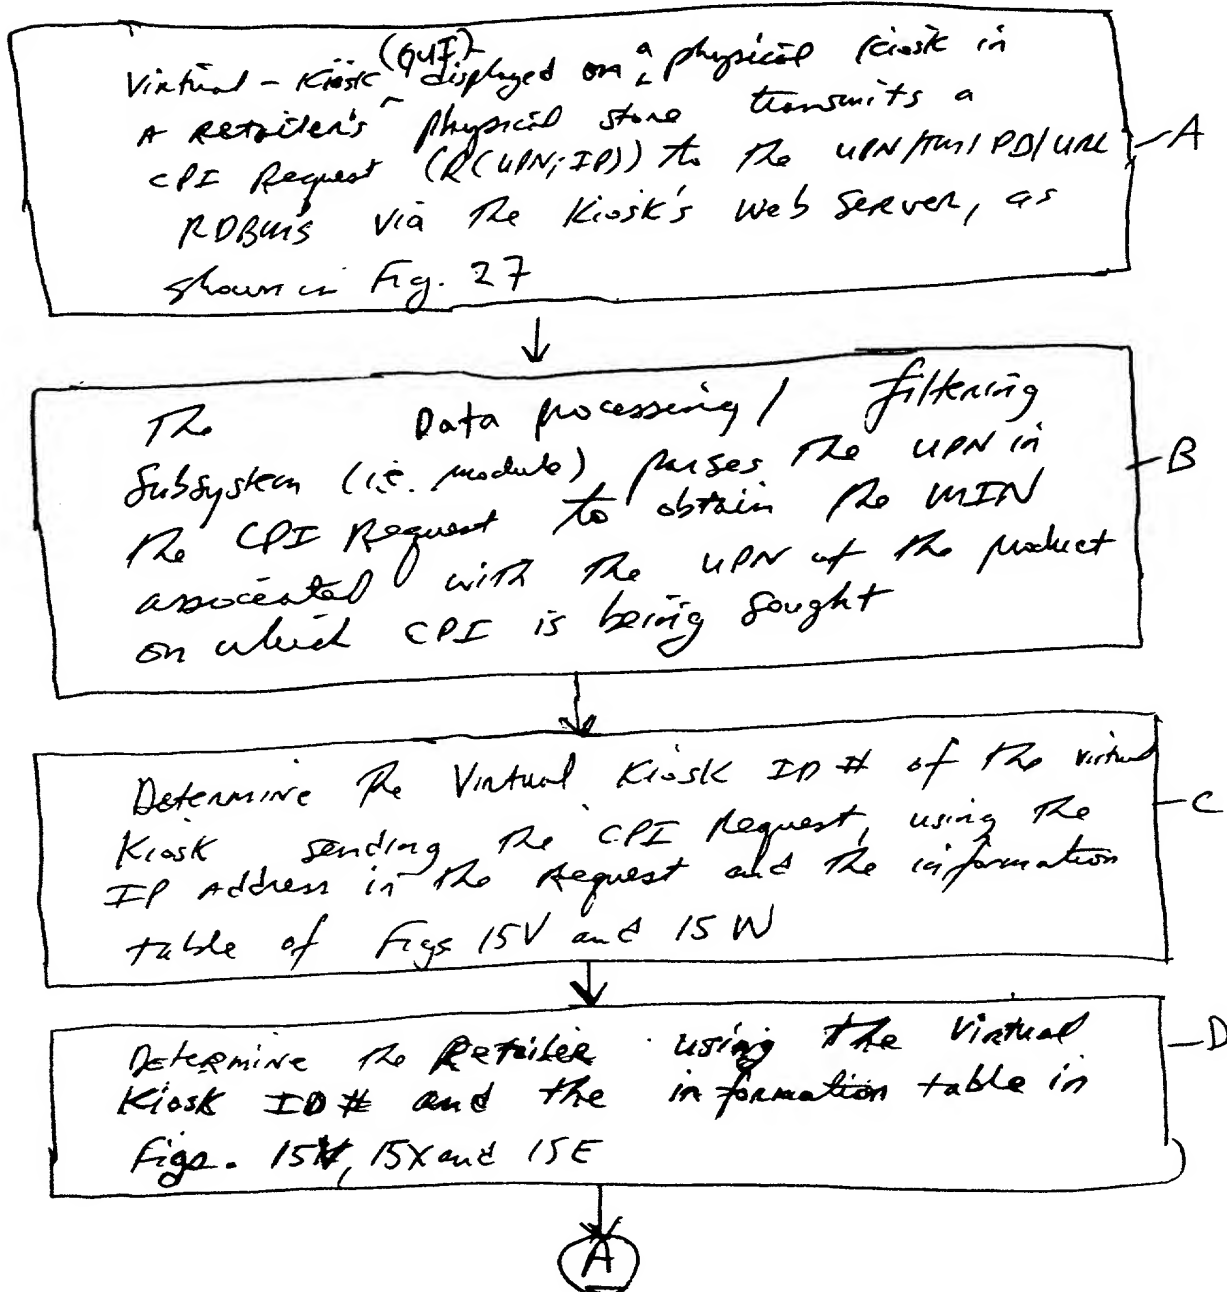 (GUI)
Virtual-Kiosk displayed on a physical kiosk in
A Retailer's physical store transmits a
CPI Request (R(UPN;IP)) to the UPN/TM/PD/URL
RDBMS via the Kiosk's Web Server, as
shown in Fig. 27
A
The Data processing/ filtering
Subsystem (i.e. module) parses the UPN in
the CPI Request to obtain the MIN
associated with the UPN of the product
on which CPI is being sought
B
Determine the Virtual Kiosk ID # of the virtual
Kiosk sending the CPI Request, using the
IP Address in the Request and the information
table of Figs 15V and 15W
C
Determine the Retailer using the Virtual
Kiosk ID # and the information table in
Figs. 15X and 15E
D
A